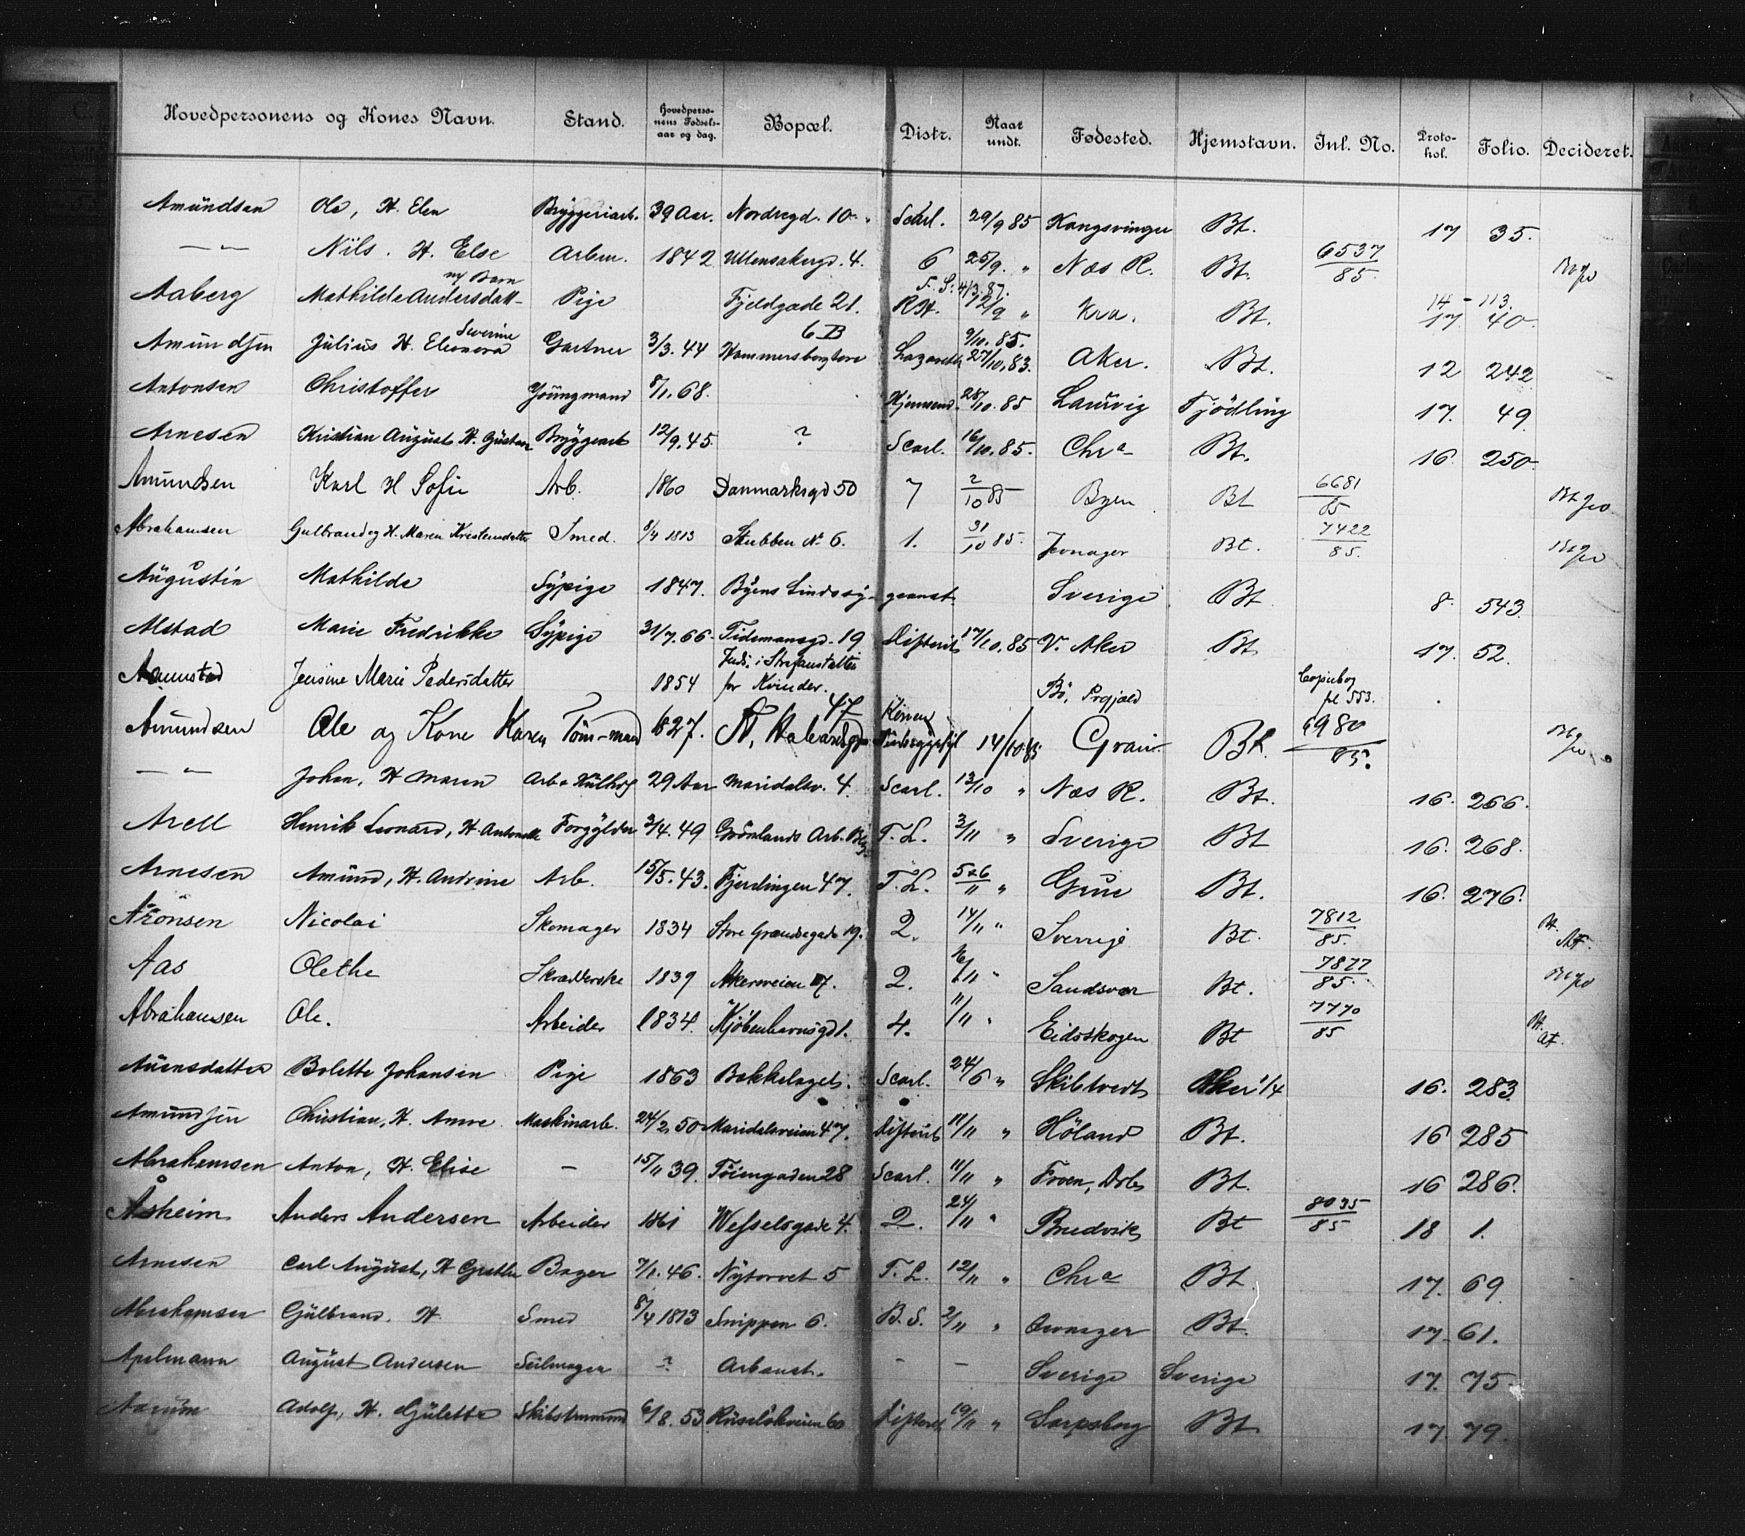 Hovedpersonens og Kones Navn. Stand. Hovedpersonens Fødselsaar og dag. Bopæl. Distr. Naar undt. Fødested. Hjemstavn. Inl. No. Protokol. Folio. Decideret.
Amundsen Ole, H. Elen Bryggeriarb. 39 Aar. Nordregd. 10 Scarl. 29/9 85 Kongsvinger Bt. 17 35.
— „ — Nils. H. Else Arbm. 1842 Ullensakergd. 4. 6 25/9 „ Næs R. Bt. 6537/85
m/ Barn F. S. 4/3.87.
Aaberg Mathilde Andersdatt Pige Fjeldgade 21. R.H. 12/9 „ Kra. Bt. 14 - 113. 17 40.
Amundsen Julius H. Eleonora Severine Gartner 3/3. 44 Hammersborgtorv 6 B Lazareth 9/10. 85. 27/10, 83. Aker. Bt. 12 242
Antonsen Christoffer Yöungmand 8/1. 68. Hjemsend. 28/10. 85 Laurvig Tjödling 17. 49
Arnesen Kristian August H. Gustava Bryggearb 12/9. 45. ? Scarl. 16/10. 85. Chra Bt. 16. 250
Amundsen Karl H Sofie Arb. 1860 Danmarksgd 50 7 2/10 85 Byen Bt 6681/85
Abrahamsen Gulbrand og H. Maren Kristensdatter Smed. 8/4 1813 Stubben No 6. 1. 31/10 85. Jevnager Bt. 7422/85.
Augustin Mathilde Sÿpige 1847. Byens Sindssygeanst. Sverige Bt 8. 543
Alstad Marie Fredrikke Sÿpige 31/7. 66. Tidemansgd. 19 Difterit 17/10. 85 V. Aker Bt 17. 52.
Aamstad Jensine Marie Pedersdatter 1854 Inds. i Strafanstalten for Kvinder. Bö, Prgjæld Copiebog fol 553.
Amundsen Ole og Kone Karen Töm-mand 1827. St. Halvardsgd 47 Konen Sindssygeasyl 14/10 85 Gran Bt. 6980/85.
— „ — Johan, H Maren Arb. 29 Aar Maridalsv. 4. Scarl. 13/10 „ Næs R. Bt. 16. 266.
Arell Henrik Leonard, H. Antonette Forgÿlder 3/4. 49 Grönlands Arb. Bolg. T. L. 3/11 „ Sverige Bt 16. 268.
Arnesen Amund, H. Andrine Arb. 15/5. 43. Fjerdingen 47. T. L. 5 & 6/11 „ Grue Bt. 16. 276.
Aronsen Nicolai Skomager 1834 Store Grændsegade 19. 2. 14/11 „ Sverrige Bt. 7812/85.
Aas Olethe Skrædderske 1839 Akersveien 17. 2. 16/11 „ Sandsvær Bt. 7877/85.
Abrahamsen Ole. Arbeider 1834. Kjöbenhavnsgd 1. 4. 11/11 „ Eidsskogen Bt 7770/85
Auensdatter Bolette Johansen Pige 1863 Bakkelaget. Scarl. 24/6 „ Skibtvedt Aker 1/4 16. 283.
Amundsen Christian, H. Anne Maskinarb. 24/2, 50 Maridalsveien 47. Difterit 11/11 „ Höland Bt. 16 285
Abrahamsen Anton, H. Elise — 15/11 39. Töiengaden 28 Scarl. 11/11 „ Froen, Drb. Bt. 16 286.
Åsheim Anders Andersen Arbeider 1861 Wesselsgade 4. 2. 24/11 „ Bredvik Bt 8035/85 18 1.
Arnesen Carl August, H Grethe Bager 7/1. 46. Nytorvet 5 T. L. 12/11 „ Chra Bt 17. 69
Abrahamsen Gulbrand. H. Smed 8/4 1813 Snippen 6. B. S. 2/11 „ Jevnager Bt. 17. 61.
Apelmann August Andersen Seilmager ? Arbanst. — — Sverige Sverige 17. 75
Aarum Adolf, H. Gulette Skibstømmm 6/8. 53 Ruselökveien 60 Difterit 19/11 „ Sarpsborg Bt 17. 79.